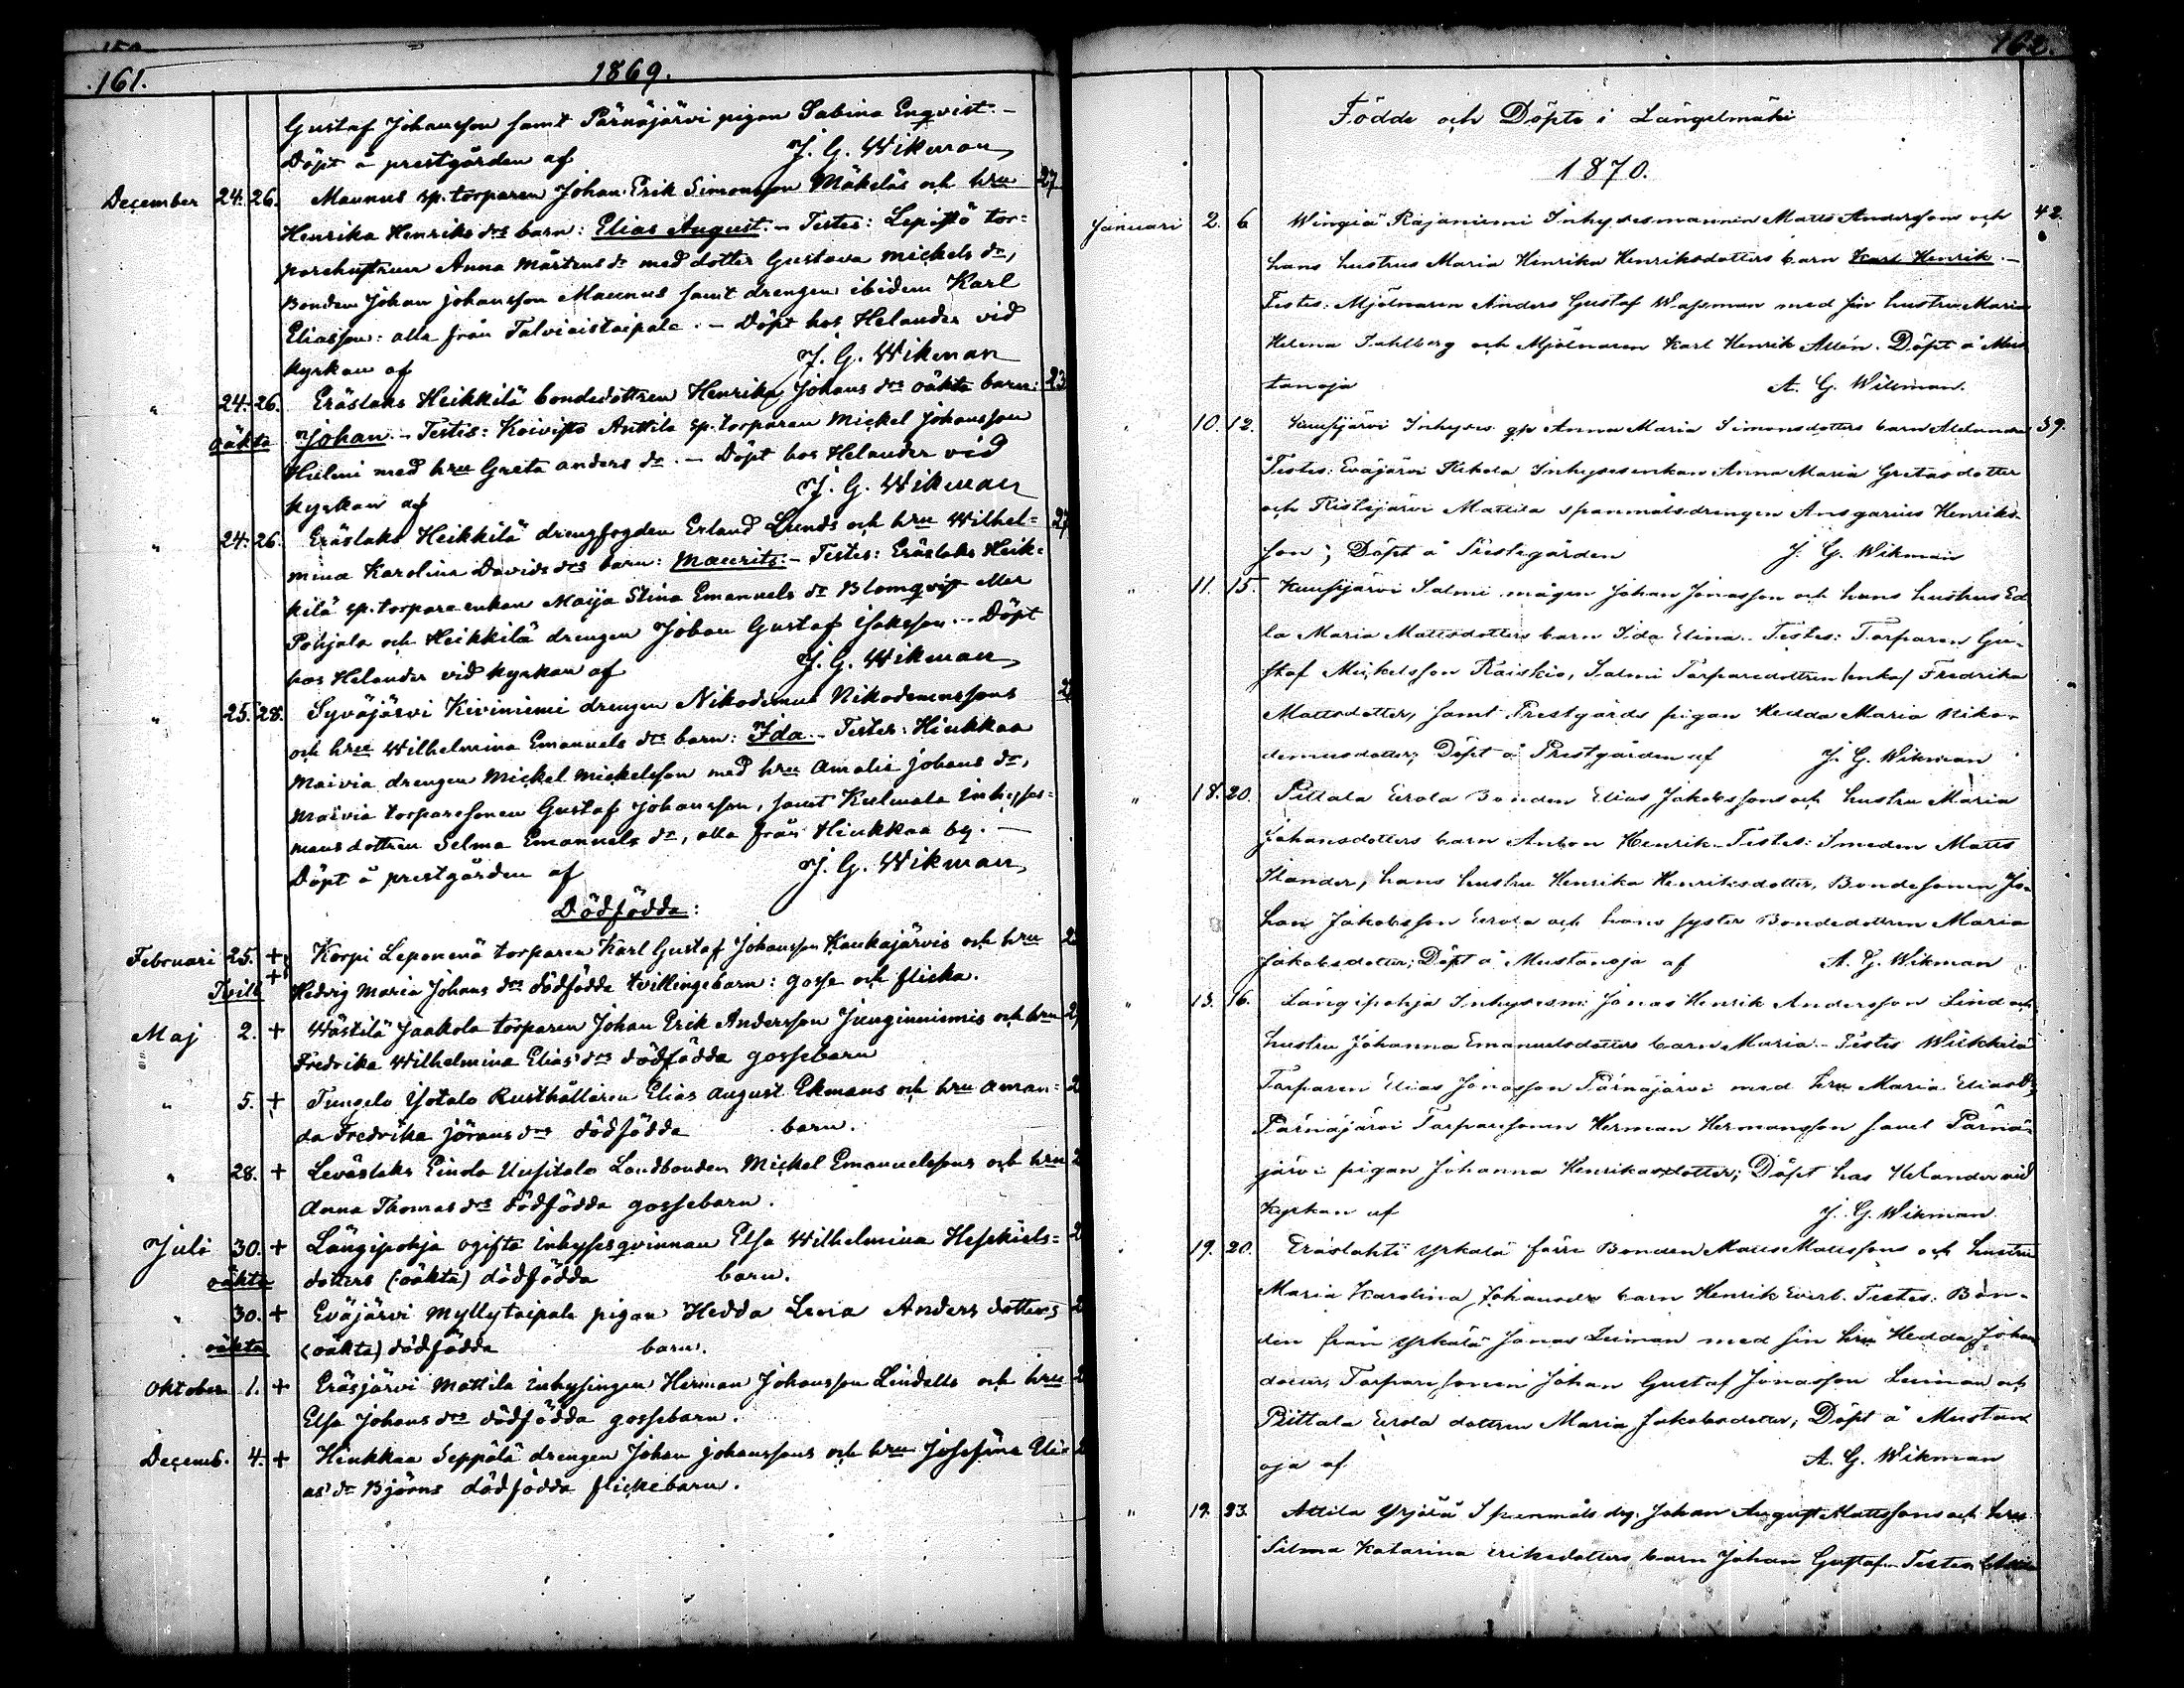 161.
1869.
Gustaf Johansson samt Pärnäjärvi pigan Sabina Enqvist. –
Döpt å prestgården af J. G. Wikman
December 24. 26. Maunus sp. torparen Johan Erik Simonsson Mäkeläs och hru 27
Henrika Henriks drs barn: Elias August. – Testes: Lepistö tor=
parehustrun Anna Mårtens dr med dotter Gustava Mickels dr,
Bonden Johan Johansson Maunus samt drengen ibidem Karl
Eliasson: alla från Talviaistaipale. – Döpt hos Helander vid
kyrkan af J. G. Wikman
" 24. 26. Eräslaks Heikkilä bondedottren Henrika Johans drs oäkta barn: 23
oäkta Johan. – Testis: Koivisto Anttila sp. torparen Mickel Johansson
Hulmi med hru Greta Anders dr. – Döpt hos Helander vid
kyrkan af J. G. Wikman
" 24. 26. Eräslaks Heikkilä drengfogden Erland Lunds och hru Wilhel= 27
mina Karolina Davids drs barn: Maurits. – Testes: Eräslaks Heik=
kilä sp. torpare enkan Maija Stina Emanuels dr Blomqvist eller
Pohjala och Heikkilä drengen Johan Gustaf Isaksson. – Döpt
hos Helander vid kyrkan af J. G. Wikman
" 25. 28. Syväjärvi Kiviniemi drengen Nikodemus Nikodemussons 2
och hru Wilhelmina Emanuels drs barn: Ida. – Testes: Hiukkaa
Maivia drengen Mickel Mickelsson med hru Amalie Johans dr,
Maivia torparesonen Gustaf Johansson, samt Kulmala Inhyses=
mans dottren Selma Emanuels dr, alla från Hiukkaa by. –
Döpt å prestgården af J. G. Wikman
Dödfödda:
Februari 25. + Korpi Leponenä torparen Karl Gustaf Johansson Kaukajärvis och hru 2
Tvill + Hedvig Maria Johans drs dödfödda tvillingebarn: gosse och flicka.
Maj 2. + Wästilä Jaakola torparen Johan Erik Andersson Junginniemis och hru 2
Fredrika Wilhelmina Elias drs dödfödda gossebarn
" 5. + Tungelo Ylotalo Rusthållaren Elias August Ekmans och hru Aman= 2
da Fredrika Jörans drs dödfödda barn.
" 28. + Leväslaks Einola Uusitalo Landbonden Mickel Emanuelssons och hru 2
Anna Thomas drs dödfödda gossebarn.
Juli 30. + Längipohja ogifta inhysesqvinnan Elsa Wilhelmina Heskiels= 2
oäkta dotters (oäkta) dödfödda barn.
" 30. + Eväjärvi Myllytaipale pigan Hedda Lena Anders dotters 2
oäkta (oäkta) dödfödda barn.
Oktober 1. + Eräsjärvi Mattila inhysingen Herman Johansson Lindells och hru 2
Elsa Johans drs dödfödda gossebarn.
Decemb. 4. + Hiukkaa Seppälä drengen Johan Johanssons och hru Josefina Eli= 2
as dr Björns dödfödda flickebarn.
162.
Födde och Döpte i Längelmäki
1870.
Januari 2. 6 Wingiä Rajaniemi Inhysesmannen Matts Anderssons och 42.
hans hustrus Maria Henrika Henriksdotters barn Karl Henrik. –
Testes: Mjölnaren Anders Gustaf Wassman med sin hustru Maria
Helena Sahlberg och Mjölnaren Karl Henrik Allén. Döpt å Mus
tanoja A. G. Wikman.
" 10. 12. Inhyses qp Anna Maria Simonsdotters barn 39.
Testes: Eväjärvi Inhysesenkan Anna Maria Gretasdotter
och Ristijärvi Mattila spanmålsdrengen Ansgarius Henriks-
son; Döpt å Prestegården J. G. Wikman
" 11. 15. Salmi mågen Johan Jonasson och hans hustrus Ed
la Maria Mattsdotters barn Ida Elina. Testes: Torparen Gu-
staf Mickelsson Raiskio, Salmi Torparedottren (enka) Fredrika
Mattsdotter, samt Prestgårds pigan Hedda Maria Niko-
demusdotter; Döpt å Prestgården af J. G. Wikman
" 18. 20. Pittala Eerola Bonden Elias Jakobssons och hustru Maria
Johansdotters barn Anton Henrik. Testes: Smeden Matts
Ilander, hans hustru Henrika Henriksdotter, Bondesonen Jo-
han Jakobsson Eerola och hans syster Bondedottren Maria
Jakobsdotter; Döpt å Mustanoja af A. G. Wikman
" 13. 16. Längipohja Inhysesm: Jonas Henrik Andersson Lind och
hustru Johanna Emanuelsdotters barn Maria. – Testes
Torparen Elias Jonasson Pärnäjärvi med hru Maria Eliasdr,
Pärnäjärvi Torparesonen Herman Hermansson samt Pärnä-
järvi pigan Johanna Henriksdotter; Döpt hos Helander vid
Kyrkan af J. G. Wikman
" 19. 20. Eräslahti Yrkälä förre Bonden Matts Mattssons och hustru
Maria Karolina Johansdrs barn Henrik Evert. Testes: Bon-
den från Yrkälä Jonas Leiman med sin hru Hedda Johans
dotter, Torparesonen Johan Gustaf Jonasson Leiman och
Pittala Eerola dottren Maria Jakobsdotter; Döpt å Mustan
oja af A. G. Wikman
" 19. 23. Attila Yrjölä Spanmåls drg. Johan August Mattssons och hru
Selma Katarina Eriksdotters barn Johan Gustaf. Testes